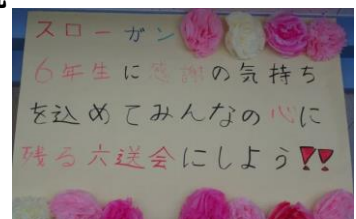 スローガン
6年生に感謝の気持ち
を込めてみんなの心に
残る六送会にしよう!!